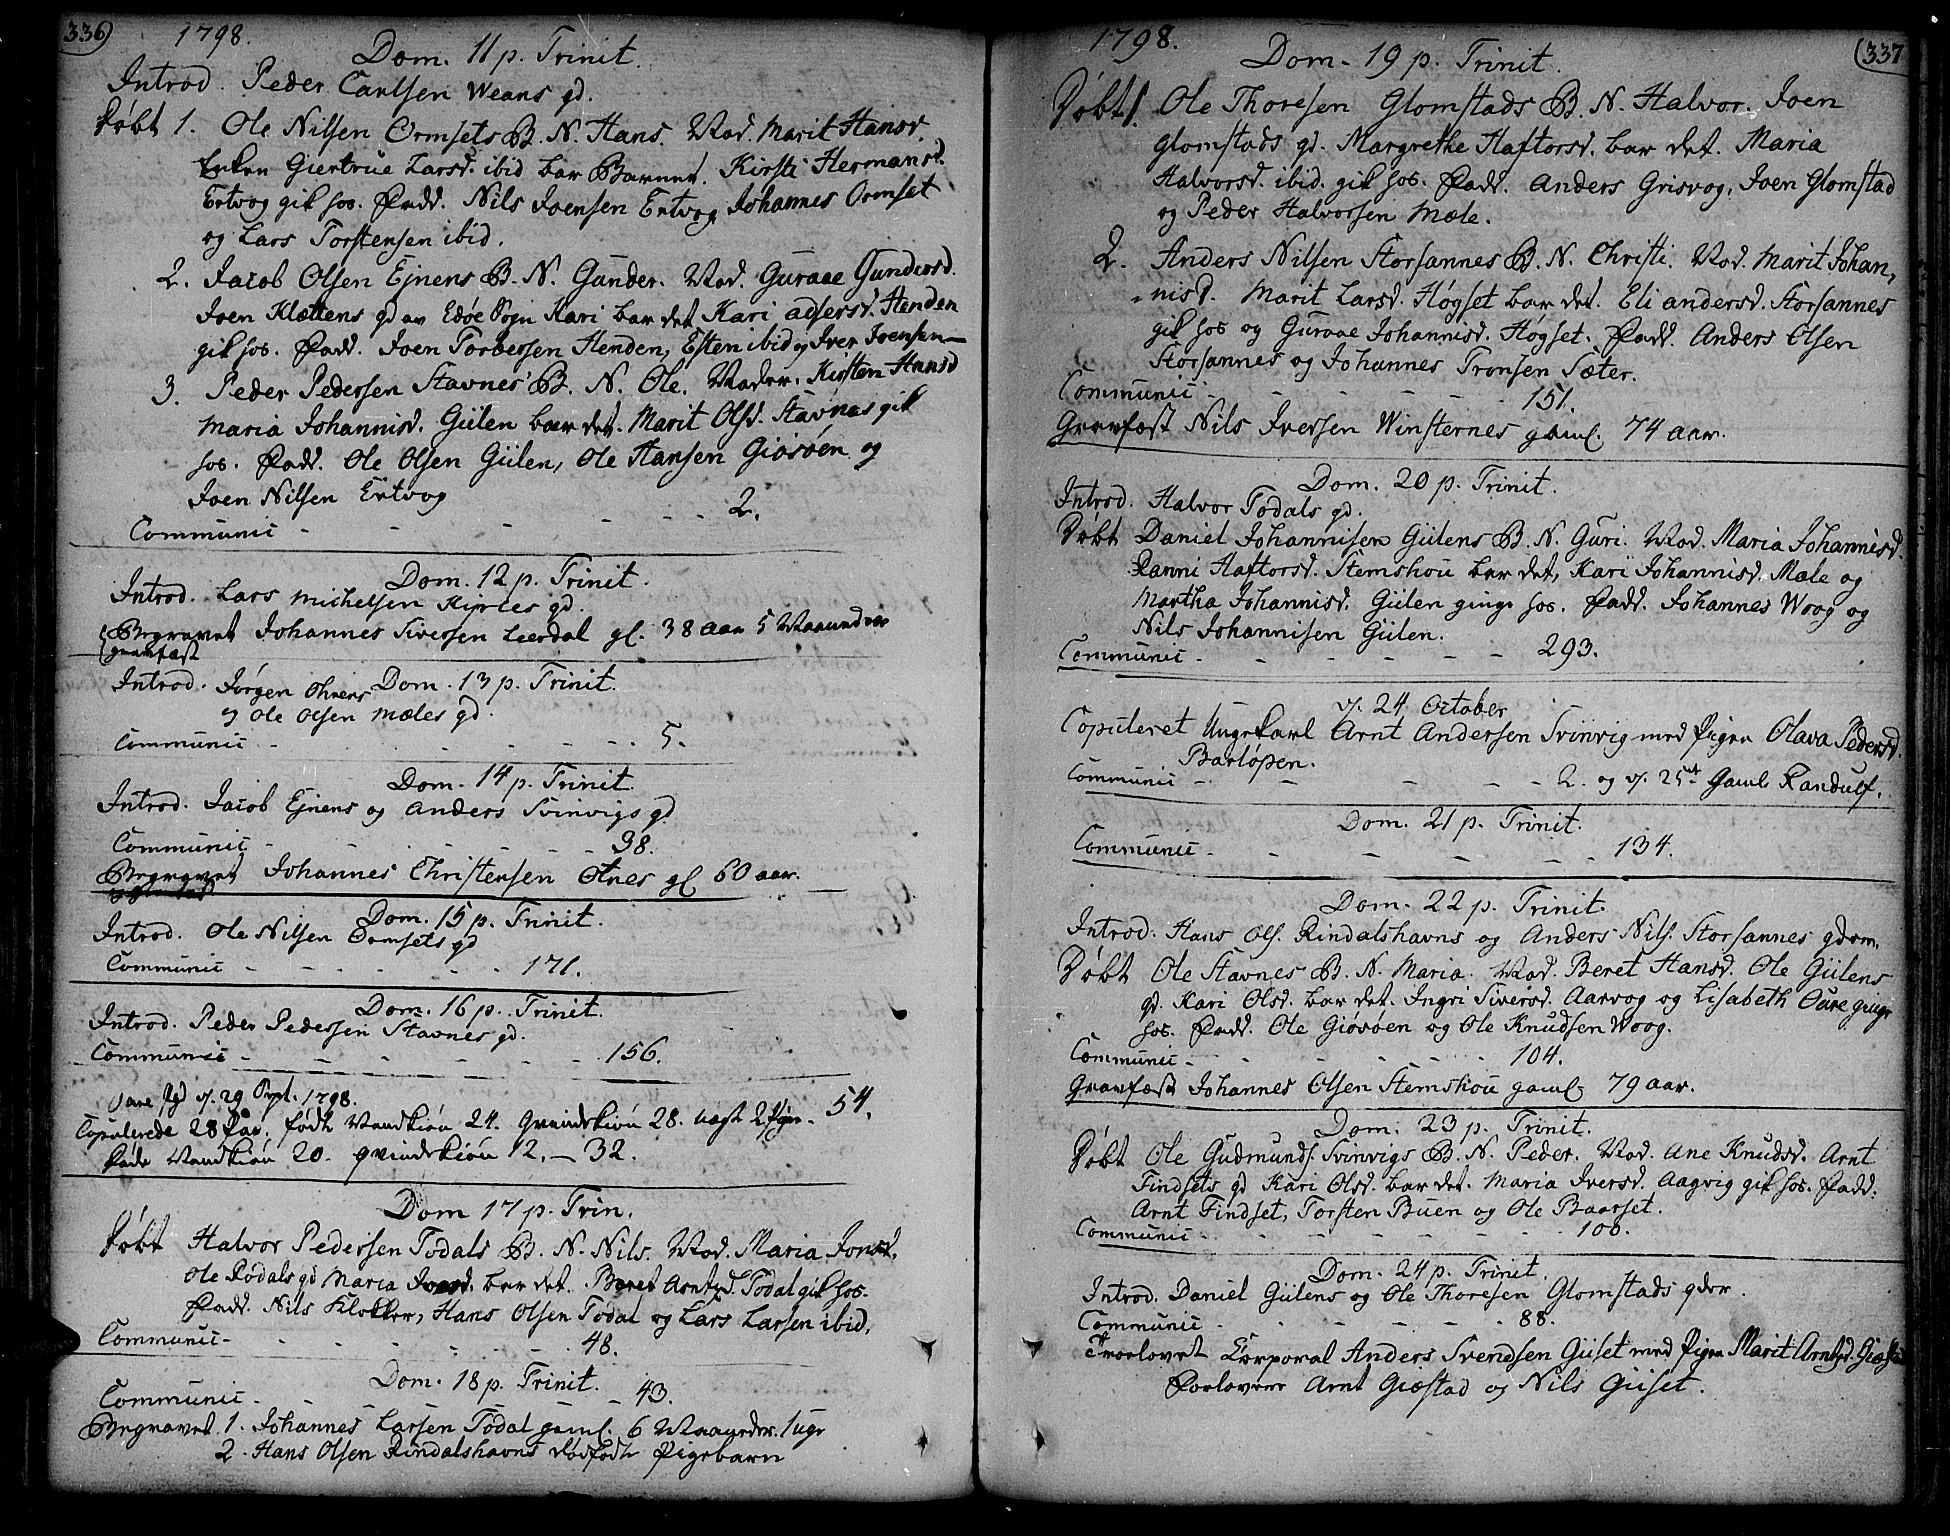 336) 1798.
Dom. 11 p. Trinit.
Introd. Peder Carlsen Weans gd.
Døbt 1. Ole Nilsen Ormsets B. N. Hans. Mod. Marit Hansd.
Enken Giertrue Larsd. ibid bar Barnet. Kirsti Hermansd.
Ertvog gik hos. Fadd. Nils Joensen Ertvog Johannes Ormset
og Lars Torstensen ibid.
2. Jacob Olsen Ejnens B. N. Gunder. Mod. Guraae Gundersd.
Joen Klættens gd av Edøe Sogn Kari bar det Kari adsersd. Henden
gik hos. Fadd. Joen Torbersen Henden, Esten ibid og Iver Joensen
3. Peder Pedersen Stavnes B. N. Ole. Moder. Kirsten Hansd
Maria Johannisd. Gülen bar det. Marit Olsd. Stavnes gik
hos. Fadd. Ole Olsen Gülen, Ole Hansen Giøsøen og
Joen Nilsen Ertvog
Communic - - - - - 2.
Dom. 12 p. Trinit.
Introd. Lars Michelsen Kiprles gd.
Begravet Johannes Siversen Leerdal gl. 38 aar 5 Maaneder
gravfæst
Dom. 13 p. Trinit.
Introd. Jørgen Ohrens
og Ole Olsen Mæles gd.
Communic - - - - - 5.
Dom. 14 p. Trinit.
Introd. Jacob Ejnens og Anders Svinvigs gd
Communic - - - - - 38.
Begravet Johannes Christensen Otnes gl 60 aar.
Dom. 15 p. Trinit.
Introd. Ole Nilsen Ormsets gd
Communic - - - - - 171.
Dom. 16 p. Trinit.
Introd. Peder Pedersen Stavnes gd.
Communic - - - - - 156.
d. 29 Sept. 1798.
Copulerede 28 Par. fødte Mandkiøn 24. Qvindekiøn 28. 54.
Døde Mandkiøn 20. qvindekiøn 12. - 32.
Dom 17 p. Trin.
Døbt Halvor Pedersen Todals B. N. Nils. Mod. Maria Jonsd.
Ole Rødals gd Maria bar det. Beret Arntsd. Todal gik hos.
Fadd. Nils Klokker, Hans Olsen Todal og Lars Larsen ibid.
Communic - - - - - 48.
Dom. 18 p. Trinit.
Communic - - - - - 43.
Begravet 1. Johannes Larsen Todal gaml. 6 Maaneder 1 uge
2. Hans Olsen Rindalshavns dødfødte Pigebarn
1798. (337
Dom. 19 p. Trinit.
Døbt 1. Ole Thoresen Glomstads B. N. Halvor. Joen
Glomstads gd. Margrethe Haftorsd. bar det. Maria
Halvorsd. ibid. gik hos. Fadd. Anders Grisvog, Joen Glomstad
og Peder Halvorsen Mæle.
2. Anders Nilsen Storsannes B. N. Christi. Mod. Marit Johan,
nisd. Marit Larsd. Høgset bar det. Eli andersd. Storsannes
gik hos og Guraae Johannisd. Høgset. Fadd. Anders Olsen
Storsannes og Johannes Tronsen Sæter.
Communic - - - - - 151.
Gravfæst Nils Iversen Winsternes gaml. 74 aar.
Dom. 20 p. Trinit.
Introd. Halvor Todals gd.
Døbt Daniel Johannisen Gülens B. N. Guri. Mod. Maria Johannisd.
Ranni Haftorsd. Stemshou bar det, Kari Johannisd. Mæle og
Martha Johannisd. Gülen ginge hos. Fadd. Johannes Woog og
Nils Johannisen Gülen.
Communic - - - - - 293.
d. 24 October
Copuleret Ungekarl Arnt Andersen Svinvig med Pigen Olava Pedersd.
Barløpen.
Communic - - - - - 2. og d. 25de Gamle Randulf.
Dom. 21 p. Trinit.
Communic - - - - - 134.
Dom. 22 p. Trinit.
Introd. Hans Ols. Rindalshavns og Anders Nils. Storsannes gdom.
Døbt Ole Stavnes B. N. Maria. Mod. Beret Hansd. Ole Gülens
gd. Kari Olsd. bar det. Ingri Siversd. Aarvog og Lisabeth Oure ginge
hos. Fadd. Ole Giøsøen og Ole Knudsen Woog.
Communic - - - - - 104.
Gravfæst Johannes Olsen Stemshou gaml. 79 aar.
Dom. 23 p. Trinit.
Døbt Ole Gudmunds. Svinvigs B. N. Peder. Mod. Ane Knudsd. Arnt
Findsets gd Kari Olsd. bar det. Maria Iversd. Aagvig gik hos. Fadd.
Arnt Findset, Torsten Buen og Ole Baarset.
Communic - - - - - 100.
Dom. 24 p. Trinit.
Introd. Daniel Gülens og Ole Thoresen Glomstads gdor.
Communic - - - - - 88.
Troelovet Corporal Anders Svendsen Güset med Pigen Marit Arntsd. Giæstad
Forlovere Arnt Giæstad og Nils Güset.